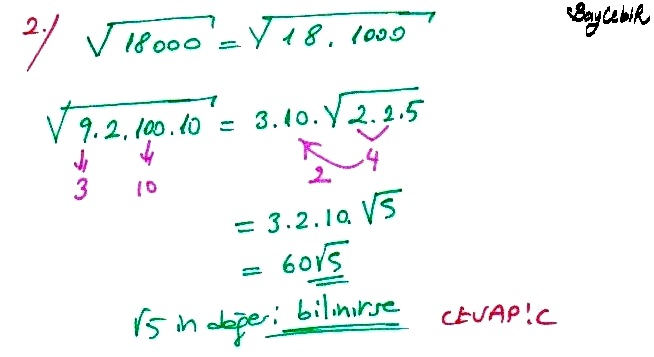 BayCebiR
2.) √18000 = √18.1000
√9.2.100.10 = 3.10.√2.2.5
3 10 2 4
= 3.2.10.√5
= 60√5
√5 in değeri bilinirse CEVAP:C